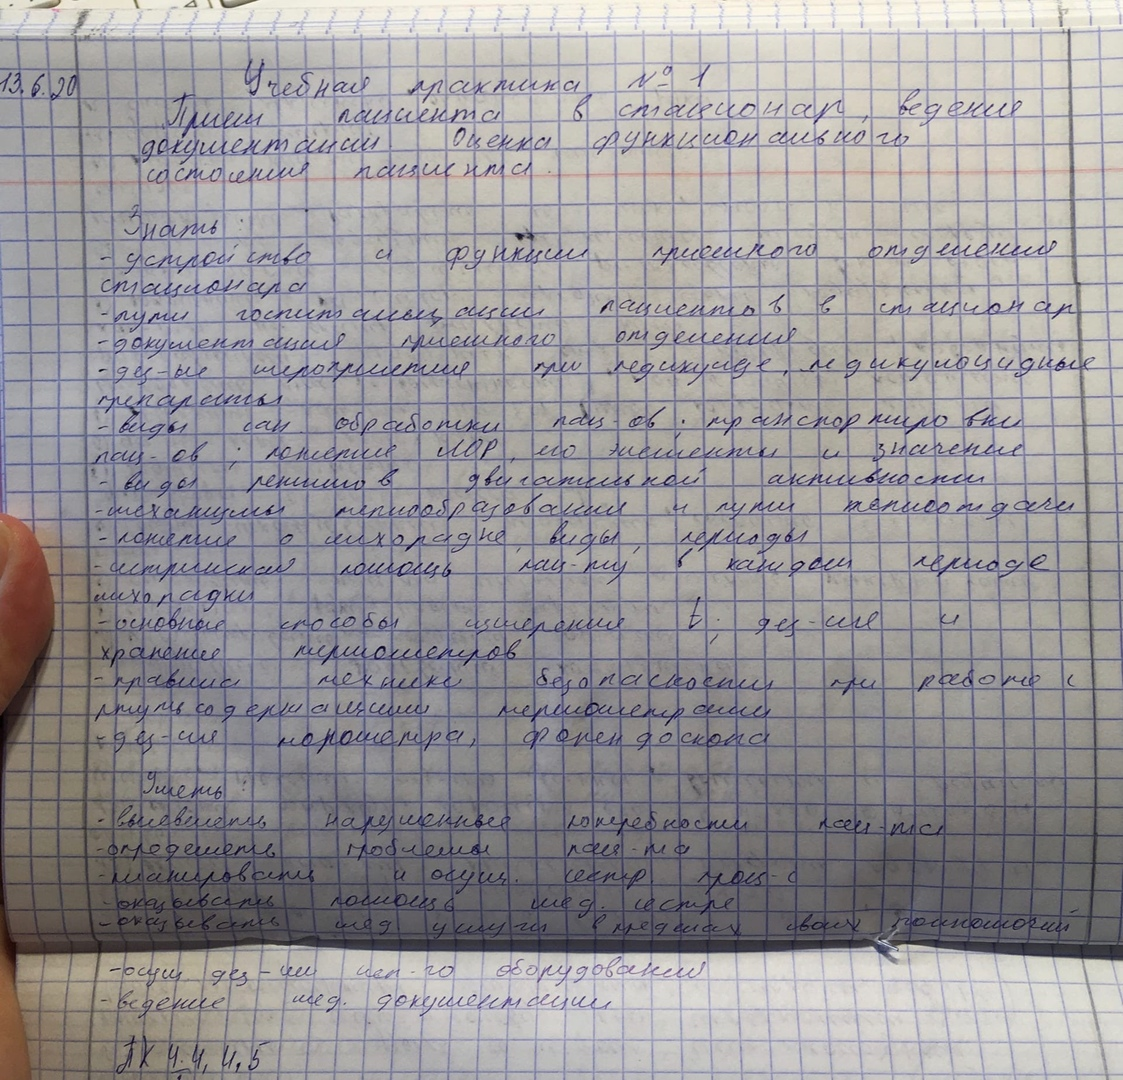 13.6.20
Учебная практика № 1
Прием пациента в стационар, ведение
документации. Оценка функционального
состояния пациента.
Знать:
- устройство и функции приемного отделения
стационара
- пути госпитализации пациентов в стационар
- документация приемного отделения
- дез-ые мероприятия при педикулезе, педикулоцидные
препараты
- виды сан обработки пац-ов; транспортировки
пац-ов; понятие ЛОР, его элементы и значение
- виды режимов двигательной активности
- механизмы теплообразования и пути теплоотдачи
- понятие о лихорадке, виды, периоды
- сестринская помощь пац-ту в каждом периоде
лихорадки
- основные способы измерения t; дез-ия и
хранение термометров
- правила техники безопасности при работе с
ртутьсодержащими термометрами
- дез-ия фонендоскопа
Уметь:
- выявлять нарушенные потребности пац-та
- определять проблемы пац-та
- планировать и осущ. сестр. проц-с
- оказывать помощь мед. сестре
- оказывать мед услуги в пределах своих полномочий
- осущ. дез-ии исп-го оборудования
- ведение мед. документации
ПК 4.4, 4,5